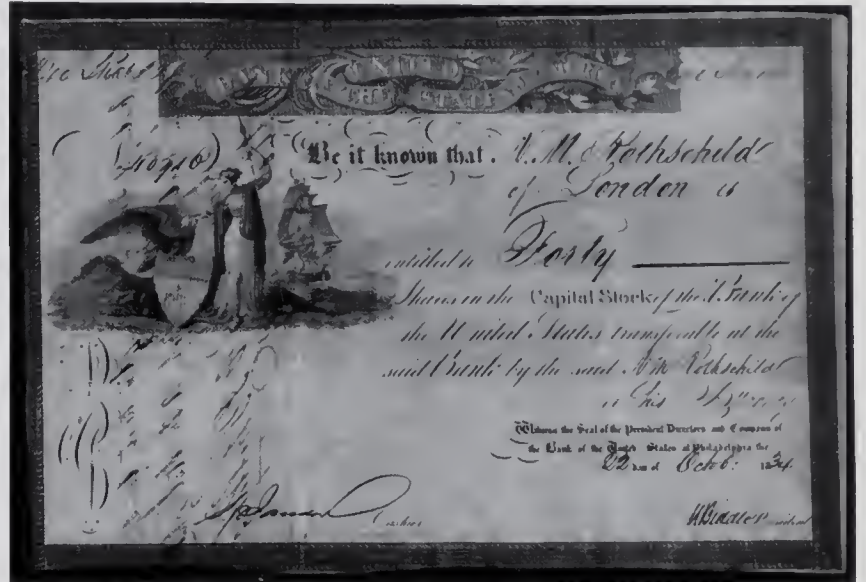 BANK OF THE UNITED STATES
Be it known that N. M. Rothschild
of London is
entitled to Forty
Shares in the Capital Stock of the Bank of
the United States transferable at the
said Bank by the said N.M. Rothschild
or his
Witness the Seal of the President Directors and Company of
the Bank of the United States at Philadelphia the
22 day of Octob: 183
Cashier
N Biddle President